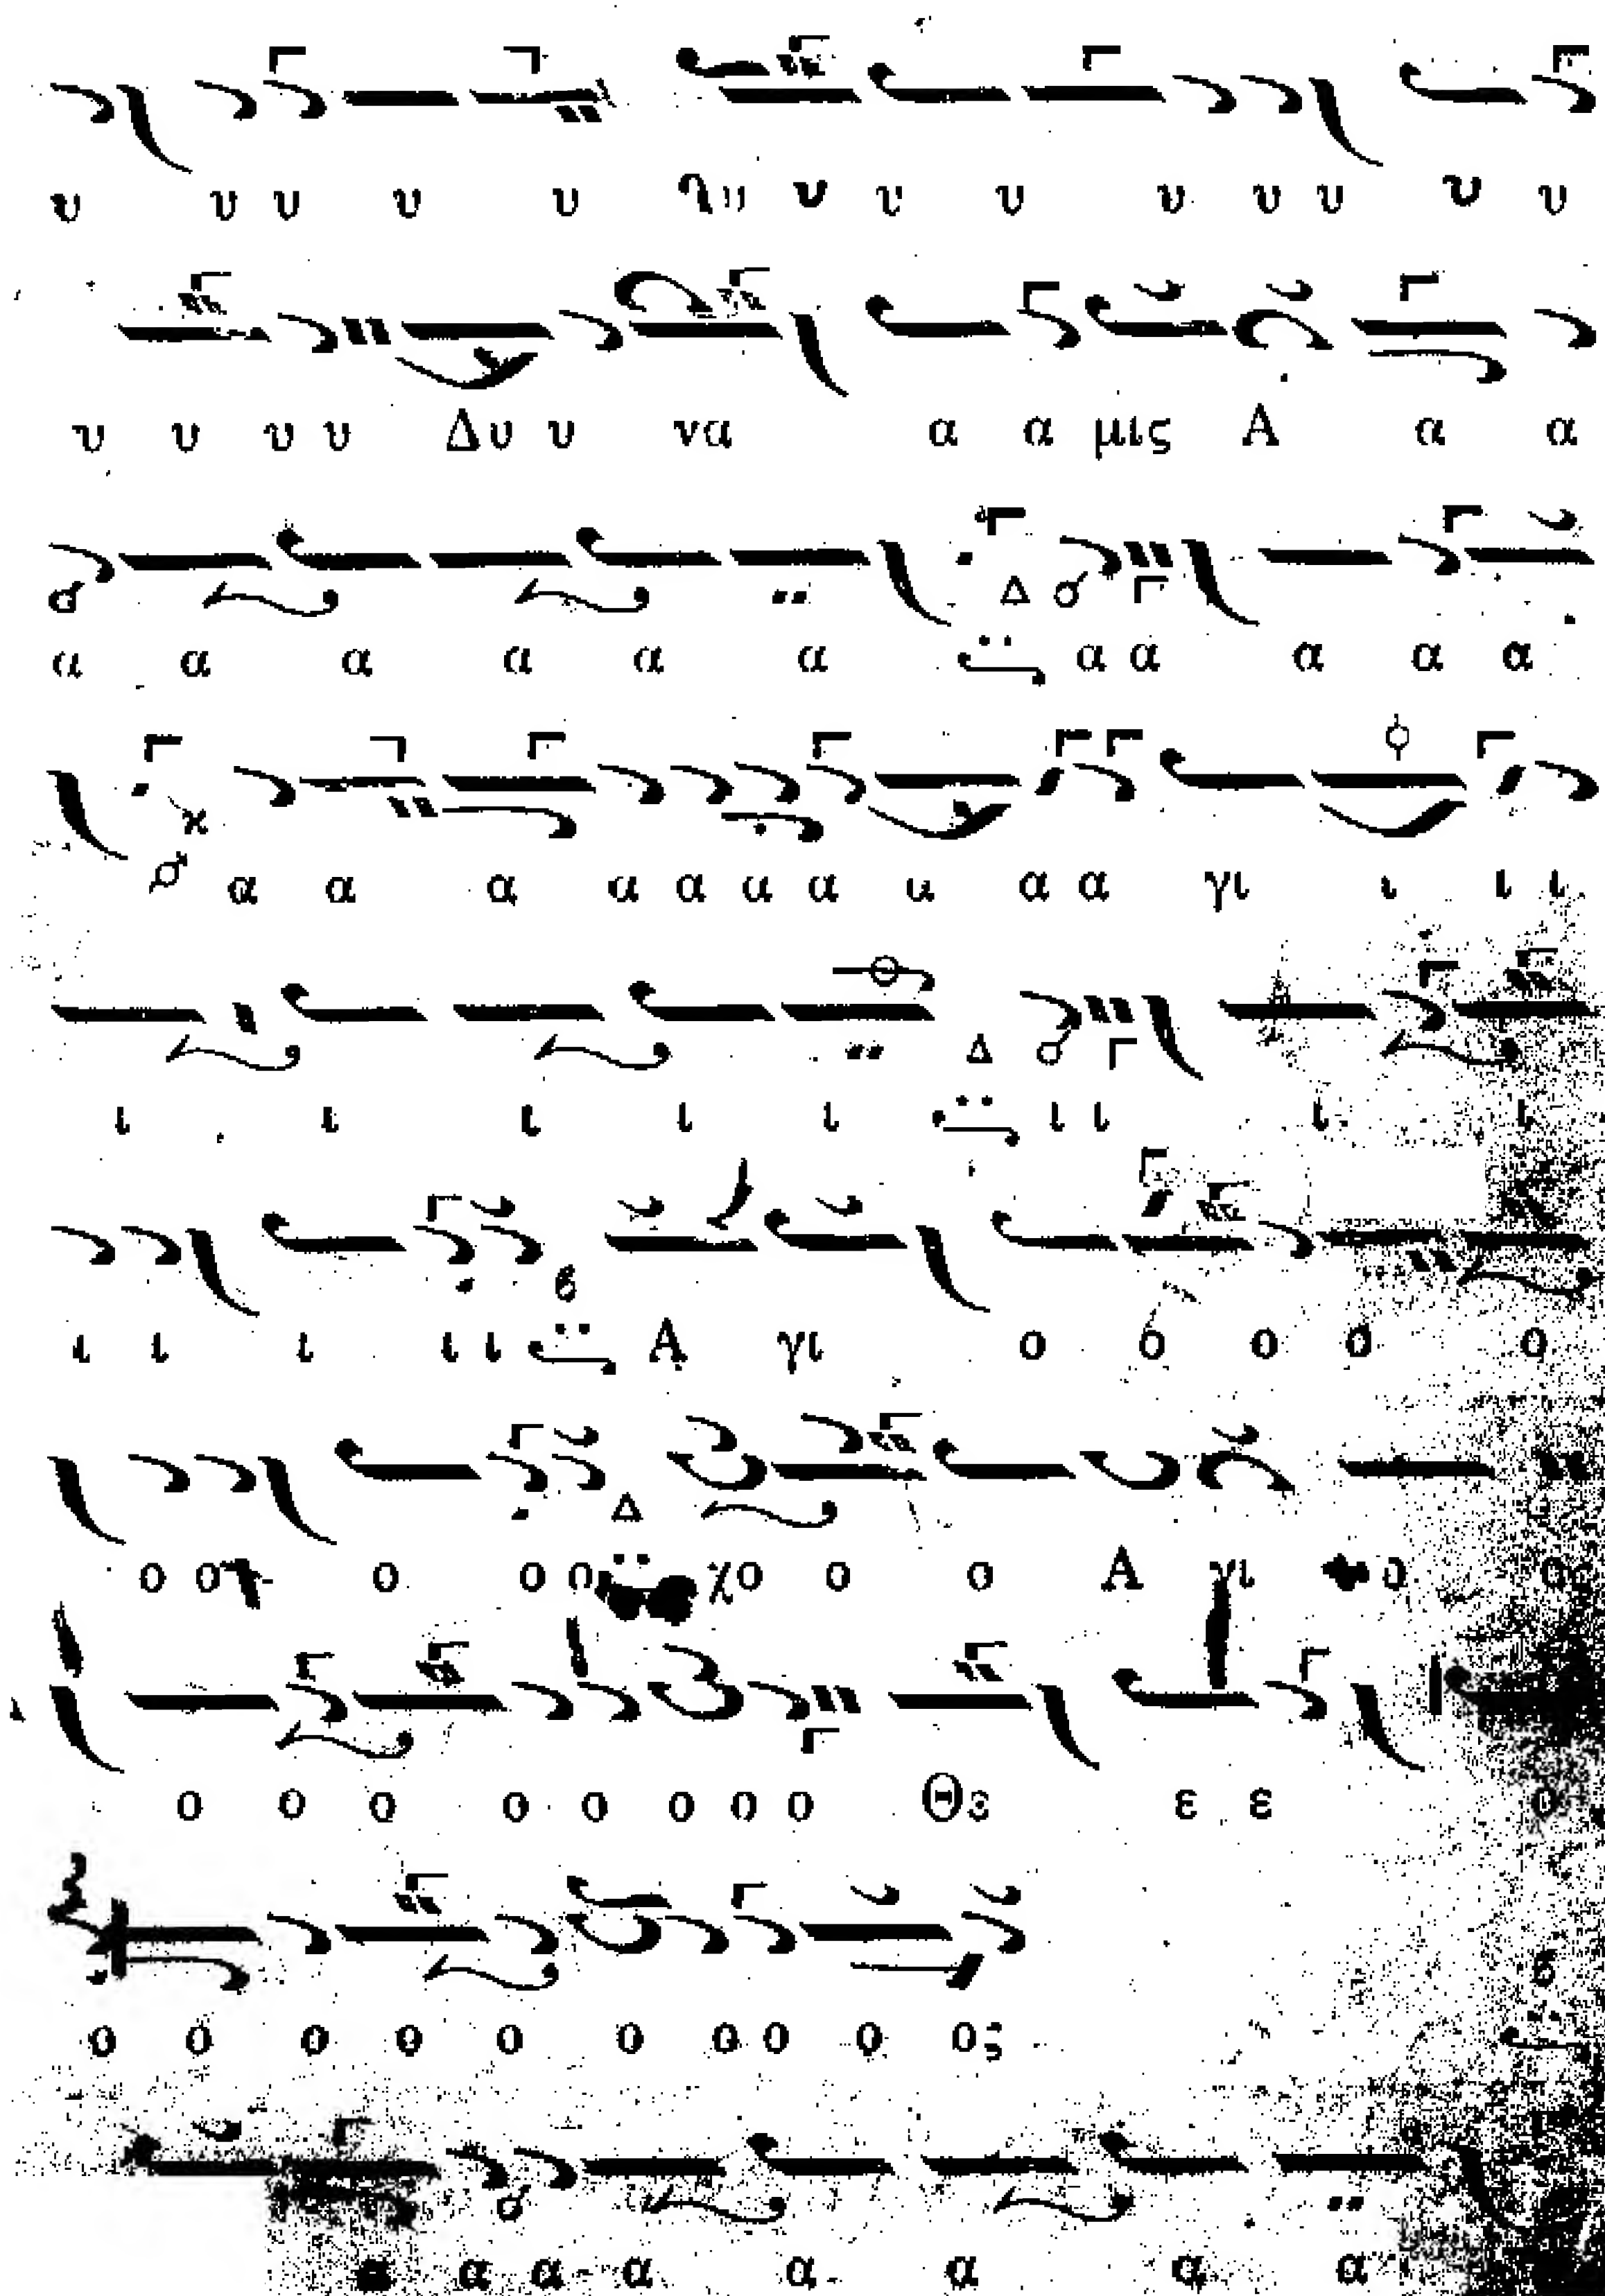 υ υ υ υ υ υ υ υ υ υ υ υ υ υ
υ υ υ υ Δυ υ να α α μις Α α α
α α α α α α α α α α α
α α α α α α α α α α γι ι ι ι
ι ι ι ι ι ι ι ι ι
ι ι ι ι ι Α γι ο ο ο ο ο
ο ο ο ο ο χο ο ο Α γι ο ο
ο ο ο ο ο ο ο ο Θε ε ε ο
ο ο ο ο ο ο ο ο ο ος
α α α α α α α α